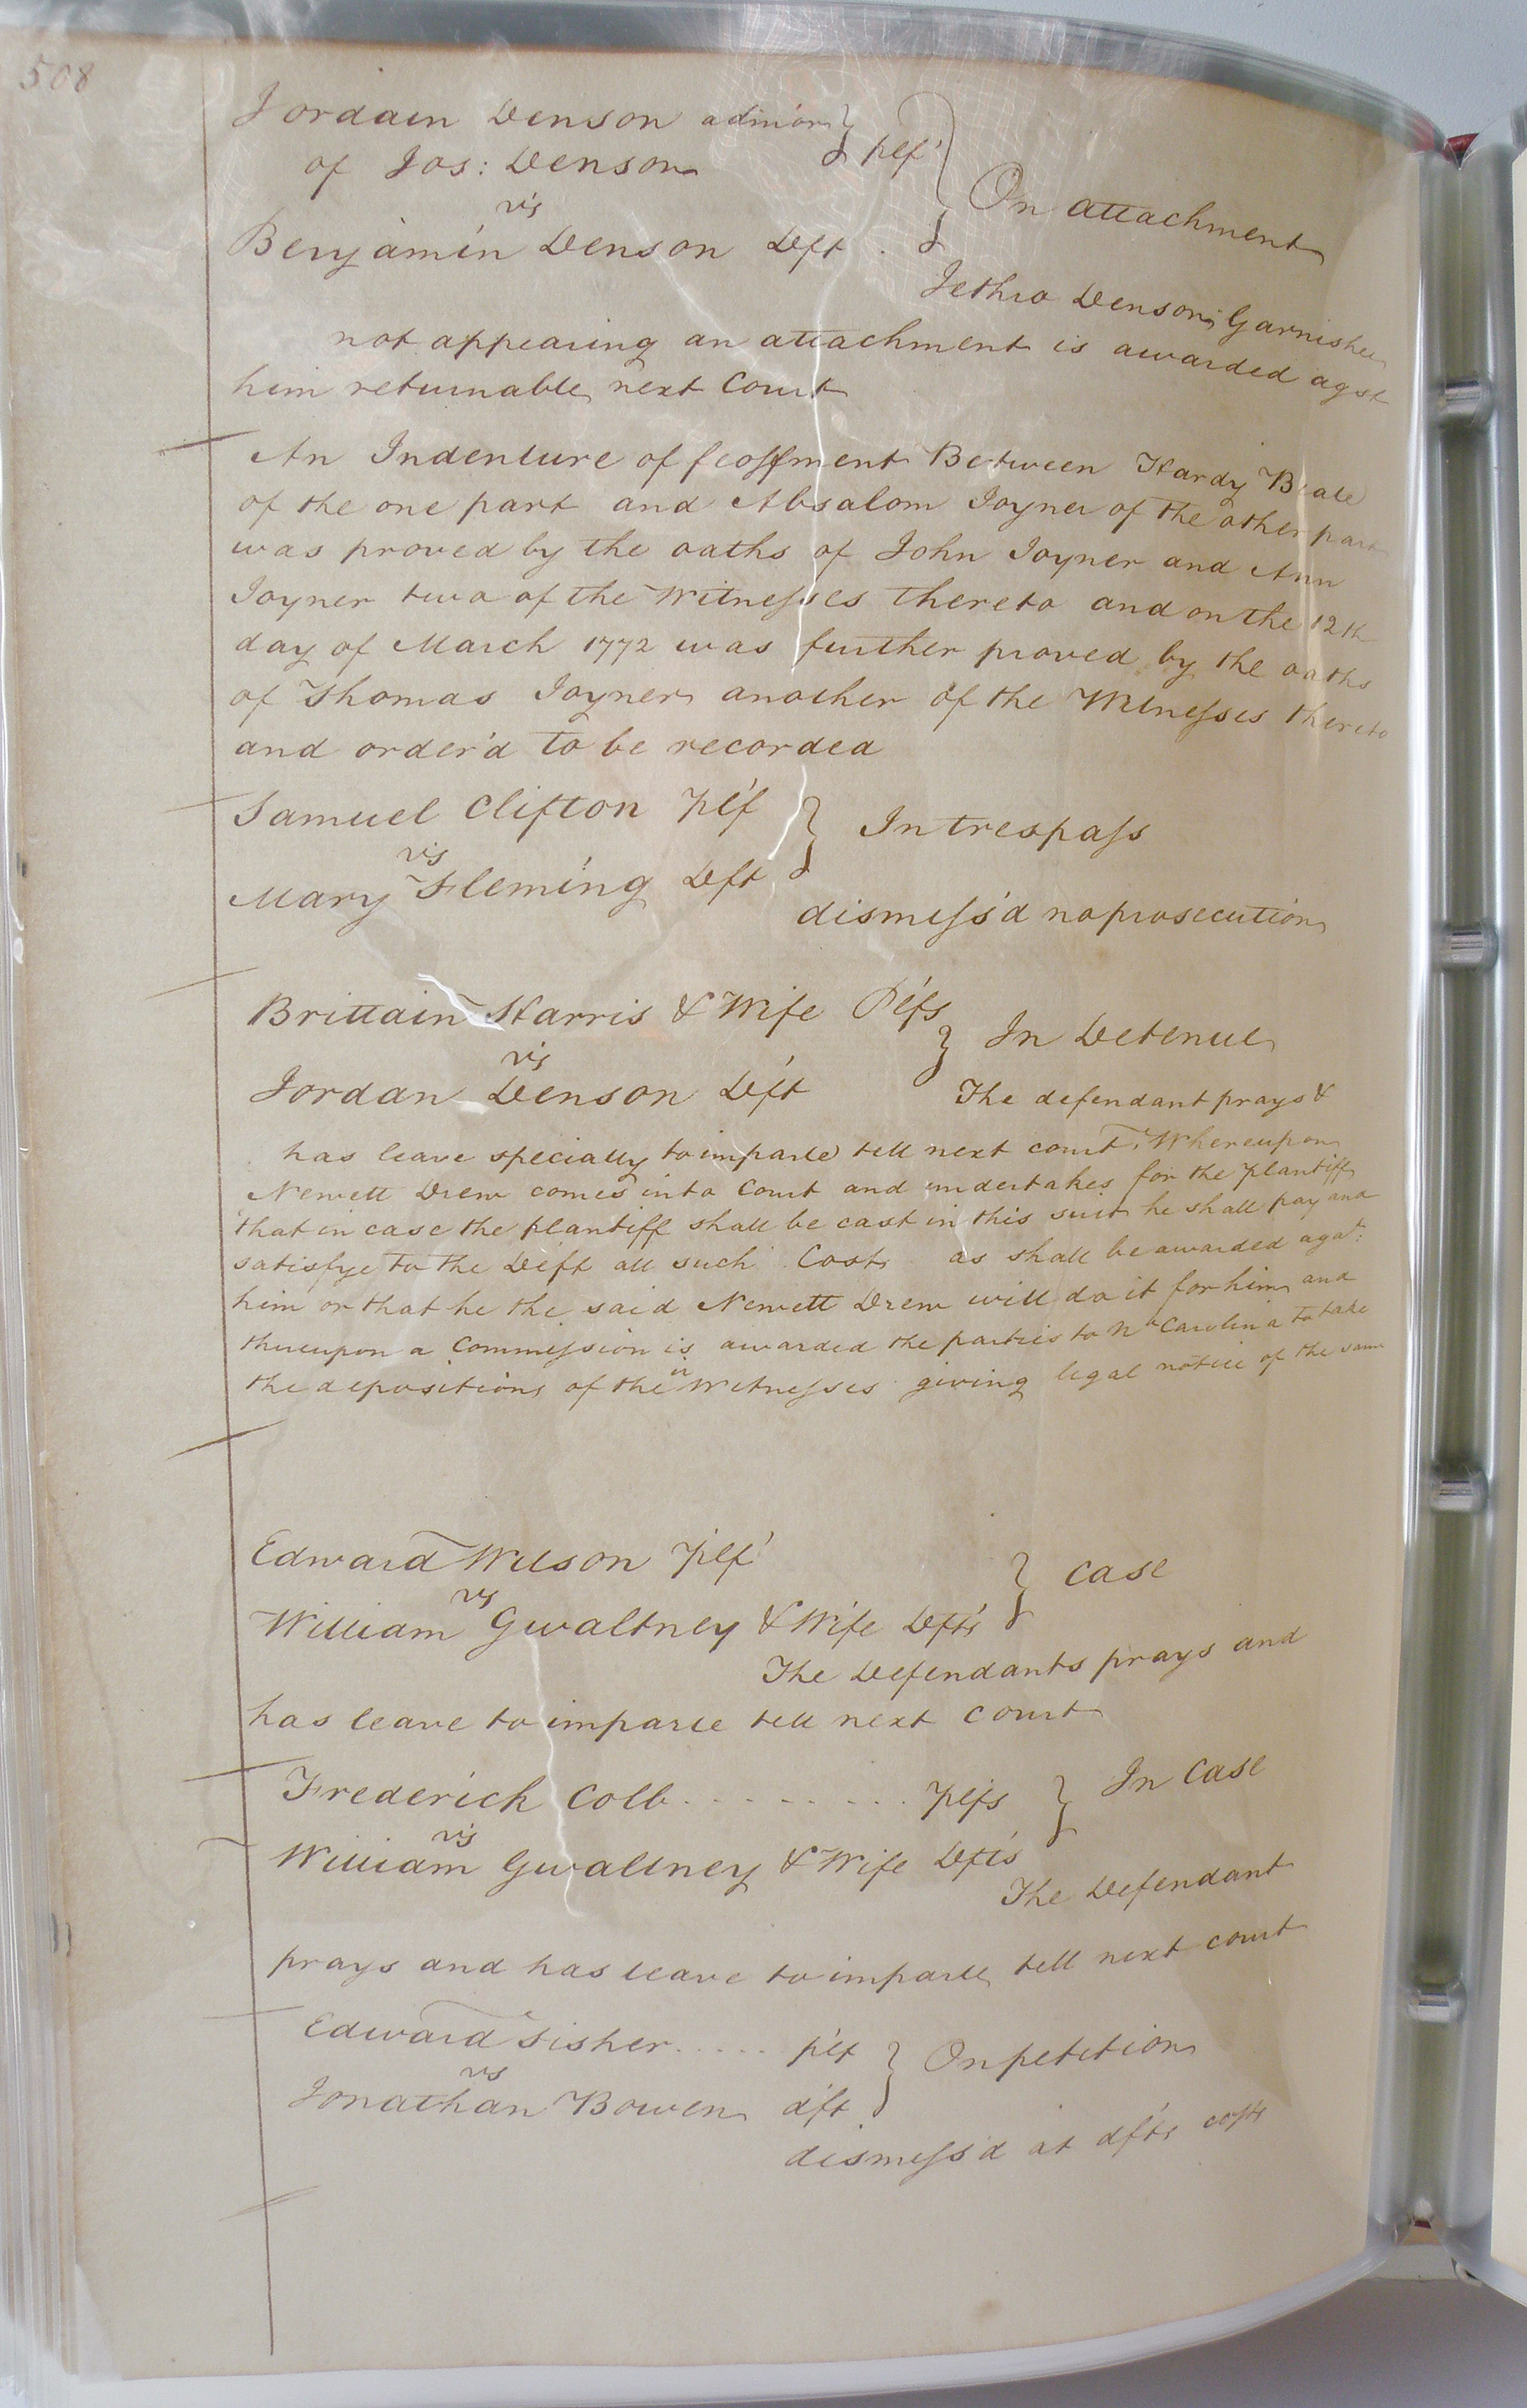 508
Jordain Denson admor } plf'
of Jos: Denson
vs } On attachment
Benjamin Denson Deft .
Jethro Denson Garnishee
not appearing an attachment is awarded agst
him returnable next Court
An Indenture of feoffment Between Hardy Beale
of the one part and Absalom Joyner of the other part
was proved by the oaths of John Joyner and Ann
Joyner two of the Witnesses thereto and on the 12th
day of March 1772 was further proved by the oaths
of Thomas Joyner another of the Witnesses thereto
and order'd to be recorded
Samuel Clifton plf
vs } In trespass
Mary Fleming Deft
dismiss'd no prosecution
Brittain Harris & Wife Plfs
vs } In Detenue
Jordan Denson Deft
The defendant prays &
has leave specially to imparle till next court, Whereupon
Newett Drew comes into Court and undertakes for the plantiff
that in case the plantiff shall be cast in this suit he shall pay and
satisfye to the Deft all such Costs as shall be awarded agat:
him or that he the said Newett Drew will do it for him and
thereupon a Commission is awarded the parties to No Carolina to take
the depositions of their Witnesses giving legal notice of the same
Edward Wilson plf'
vs } Case
William Gwaltney & Wife Defts
The Defendants prays and
has leave to imparle till next court
Frederick Colb . . . . . . . . . plfs
vs } In Case
William Gwaltney & Wife Defts
The Defendant
prays and has leave to imparle till next court
Edward Fisher ..... plf
vs } On petition
Jonathan Bowen dft
dismiss'd at dfts costs